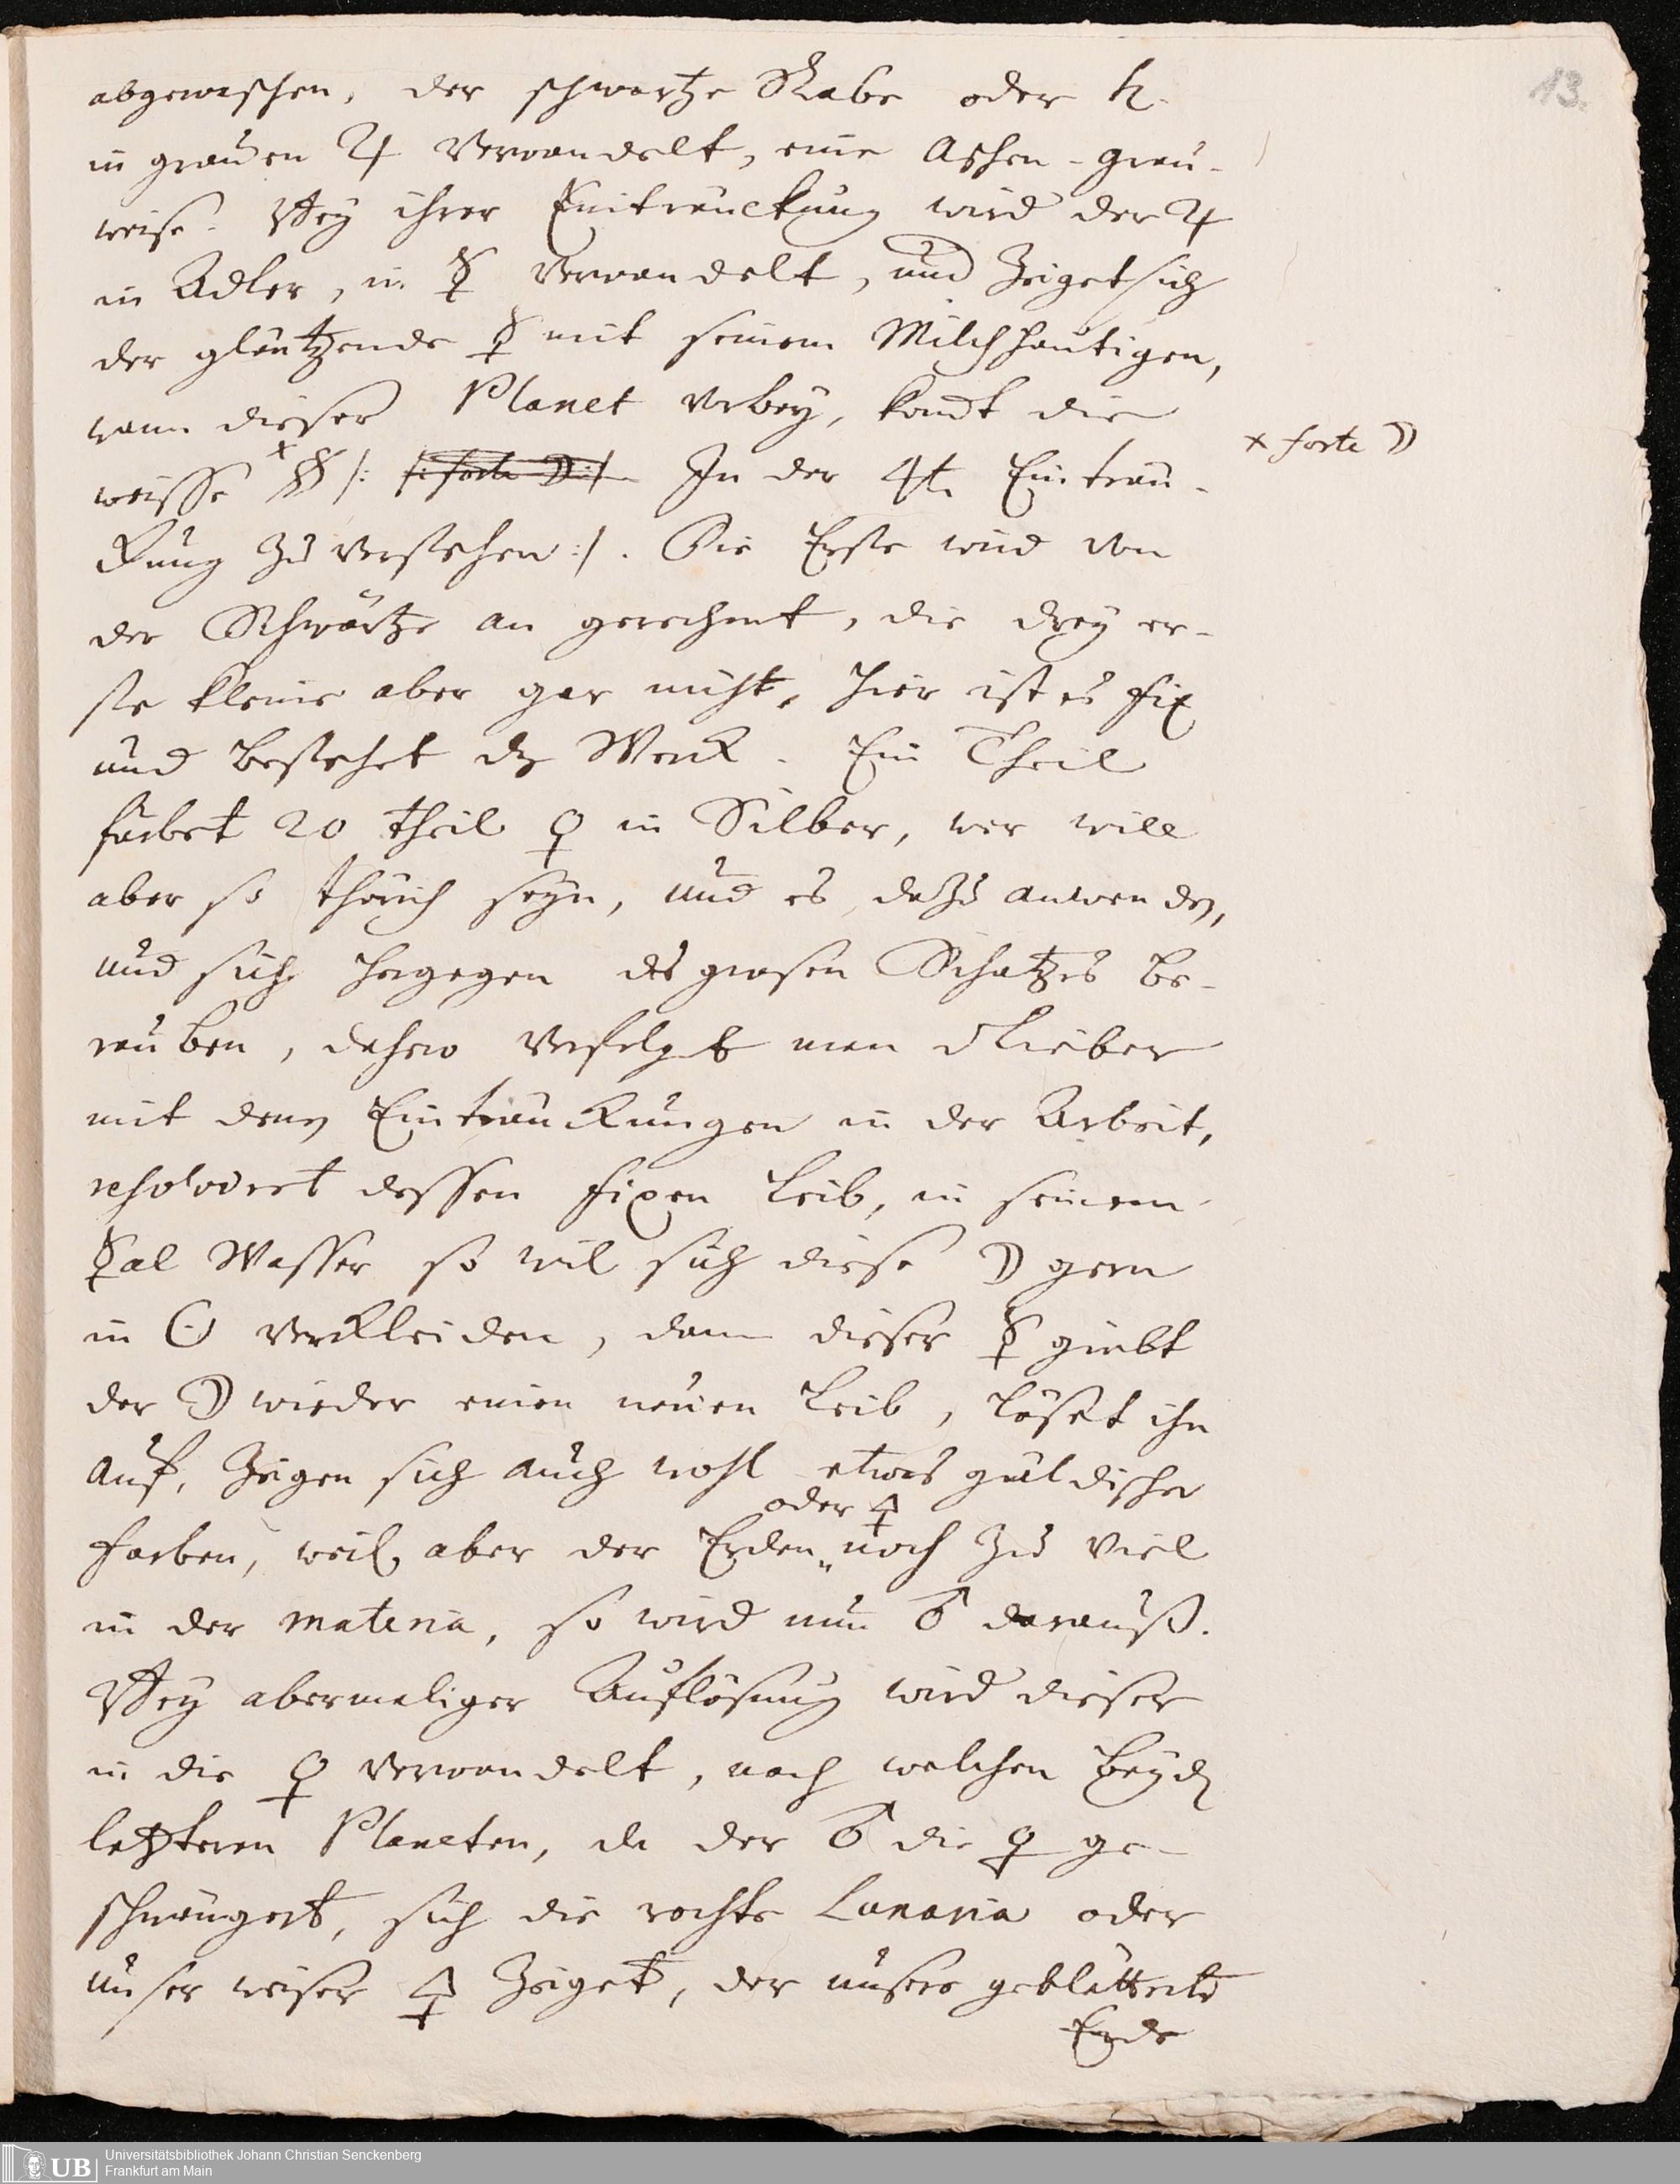 13.
abgewaschen, der schwartze Rabe oder ♄.
in grauen ♃ verwandelt, eine Aschen-grau-
weise. Bey ihrer Eintränckung wird der ♃
in Adler, in ☿ verwandelt, und zeiget sich
der gläntzende ☿ mit seinem Milchhäutigen,
wann dieser Planet vorbey, komt die
weisse x /: /: forte ☽ :/ In der 4t. Einträn-
kung zu verstehen :/. Die Erste wird von
der Schwärtze an gerechnet, die drey er-
ste kleine aber gar nicht, hier ist es fix
und bestehet dz Werk. Ein Theil
färbet 20 theil ♀ in Silber, wer will
aber so thörich seyn, und es dazu anwenden,
und sich hergegen des grosen Schatzes be-
rauben, dahero verfolgt man lieber
mit denen Einträнkungen in der Arbeit,
resolvirt dessen fixen Leib, in seinem
☿al Wasser so wil sich diese ☽ gern
in ☉ verkleiden, dann dieser ☿ giebt
der ☽ wieder einen neuen Leib, löset ihn
auf, zeigen sich auch wohl etwas güldische
oder 🜍
farben, weil aber der Erden noch zu viel
in der materia, so wird nun ♂ darauß.
Bey abermaliger Auflösung wird dieser
in die ♀ verwandelt, nach welchen beyden
letzteren Planeten, da der ♂ die ♀ ge-
schwängert, sich die rechte Lunaria oder
unser weiser 🜍 zeiget, der unsere geblätterte
Erde
x forte ☽
UB
Universitätsbibliothek Johann Christian Senckenberg
Frankfurt am Main